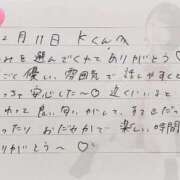 2月11日 Kくんへ
みを選んでくれてありがとう♡
ごく優しい雰囲気で話しやすくて
っても安心した〜☺ 近くにいると
かって良い匂いがして、すごくた
ったりおだやかで楽しい時間
りがとう〜♡